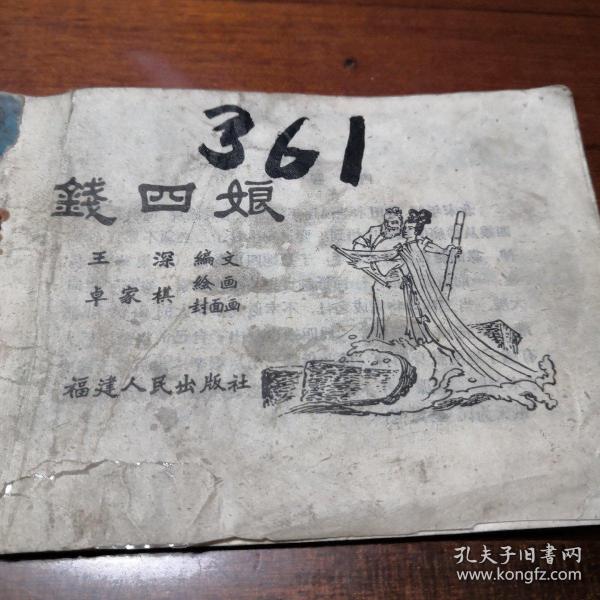 361
錢四娘
王 深 編文
卓家棋 絵画
封面画
福建人民出版社
孔夫子旧书网
www.kongfz.com